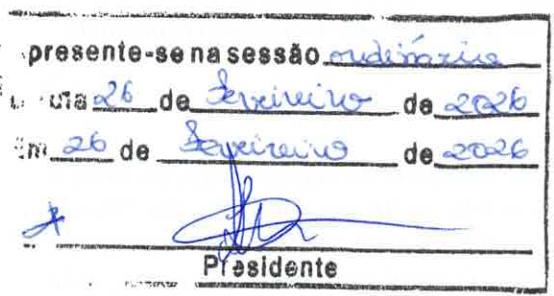 presente-se na sessão ordinária
dia 26 de fevereiro de 2026
Em 26 de fevereiro de 2026
Presidente